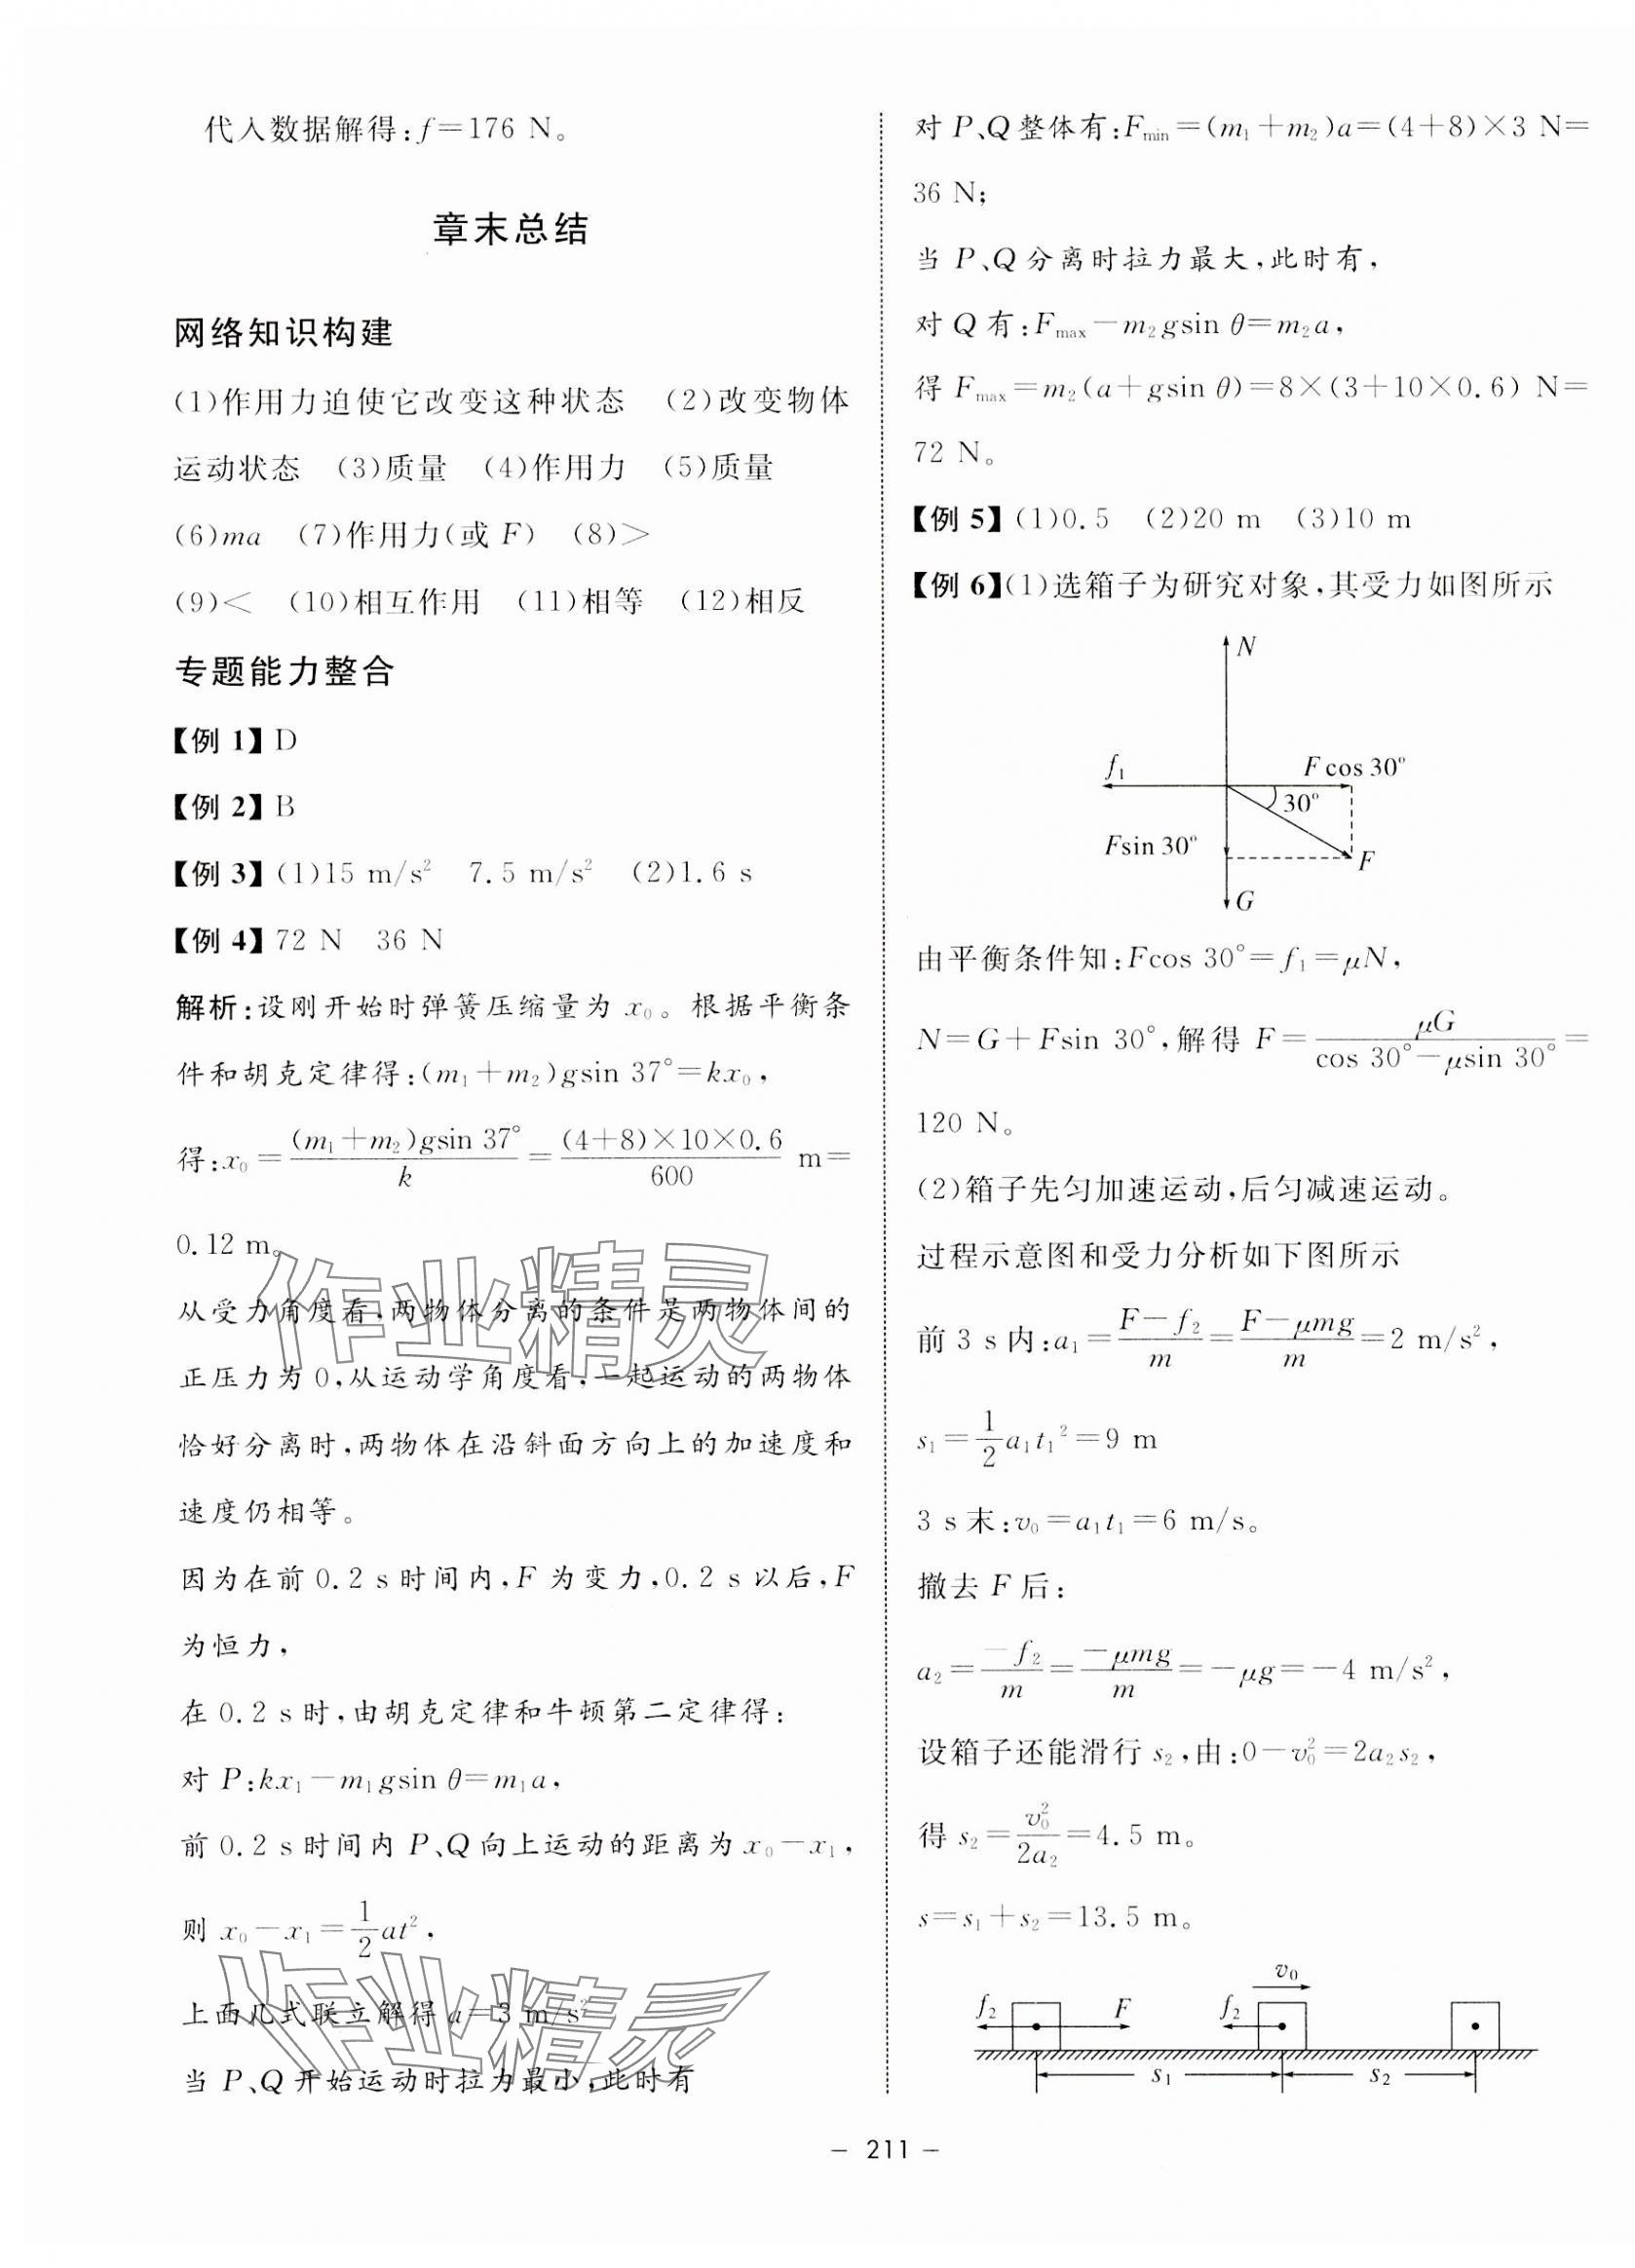 代入数据解得:f=176 N。
章末总结
网络知识构建
(1)作用力迫使它改变这种状态 (2)改变物体
运动状态 (3)质量 (4)作用力 (5)质量
(6)ma (7)作用力(或 F) (8)>
(9)< (10)相互作用 (11)相等 (12)相反
专题能力整合
【例 1】D
【例 2】B
【例 3】(1)15 m/s² 7.5 m/s² (2)1.6 s
【例 4】72 N 36 N
解析:设刚开始时弹簧压缩量为 x₀。根据平衡条
件和胡克定律得:(m₁+m₂)gsin 37°=kx₀,
得:x₀=(m₁+m₂)gsin 37°/k=(4+8)×10×0.6/600 m=
0.12 m。
从受力角度看,两物体分离的条件是两物体间的
正压力为 0,从运动学角度看,一起运动的两物体
恰好分离时,两物体在沿斜面方向上的加速度和
速度仍相等。
因为在前 0.2 s 时间内,F 为变力,0.2 s 以后,F
为恒力,
在 0.2 s 时,由胡克定律和牛顿第二定律得:
对 P:kx₁-m₁gsin θ=m₁a,
前 0.2 s 时间内 P、Q 向上运动的距离为 x₀-x₁,
则 x₀-x₁=1/2 at²,
上面几式联立解得 a=3 m/s²
当 P、Q 开始运动时拉力最小,此时有
作业精灵
作业精灵
对 P、Q 整体有:Fmin=(m₁+m₂)a=(4+8)×3 N=
36 N;
当 P、Q 分离时拉力最大,此时有,
对 Q 有:Fmax-m₂gsin θ=m₂a,
得 Fmax=m₂(a+gsin θ)=8×(3+10×0.6) N=
72 N。
【例 5】(1)0.5 (2)20 m (3)10 m
【例 6】(1)选箱子为研究对象,其受力如图所示
N
f₁ F cos 30°
30°
Fsin 30° F
G
由平衡条件知:Fcos 30°=f₁=μN,
N=G+Fsin 30°,解得 F=μG/(cos 30°-μsin 30°)=
120 N。
(2)箱子先匀加速运动,后匀减速运动。
过程示意图和受力分析如下图所示
前 3 s 内:a₁=(F-f₂)/m=(F-μmg)/m=2 m/s²,
s₁=1/2 a₁t₁²=9 m
3 s 末:v₀=a₁t₁=6 m/s。
撤去 F 后:
a₂=-f₂/m=-μmg/m=-μg=-4 m/s²,
设箱子还能滑行 s₂,由:0-v₀²=2a₂s₂,
得 s₂=v₀²/2a₂=4.5 m。
s=s₁+s₂=13.5 m。
v₀
f₂ F f₂
s₁ s₂
- 211 -